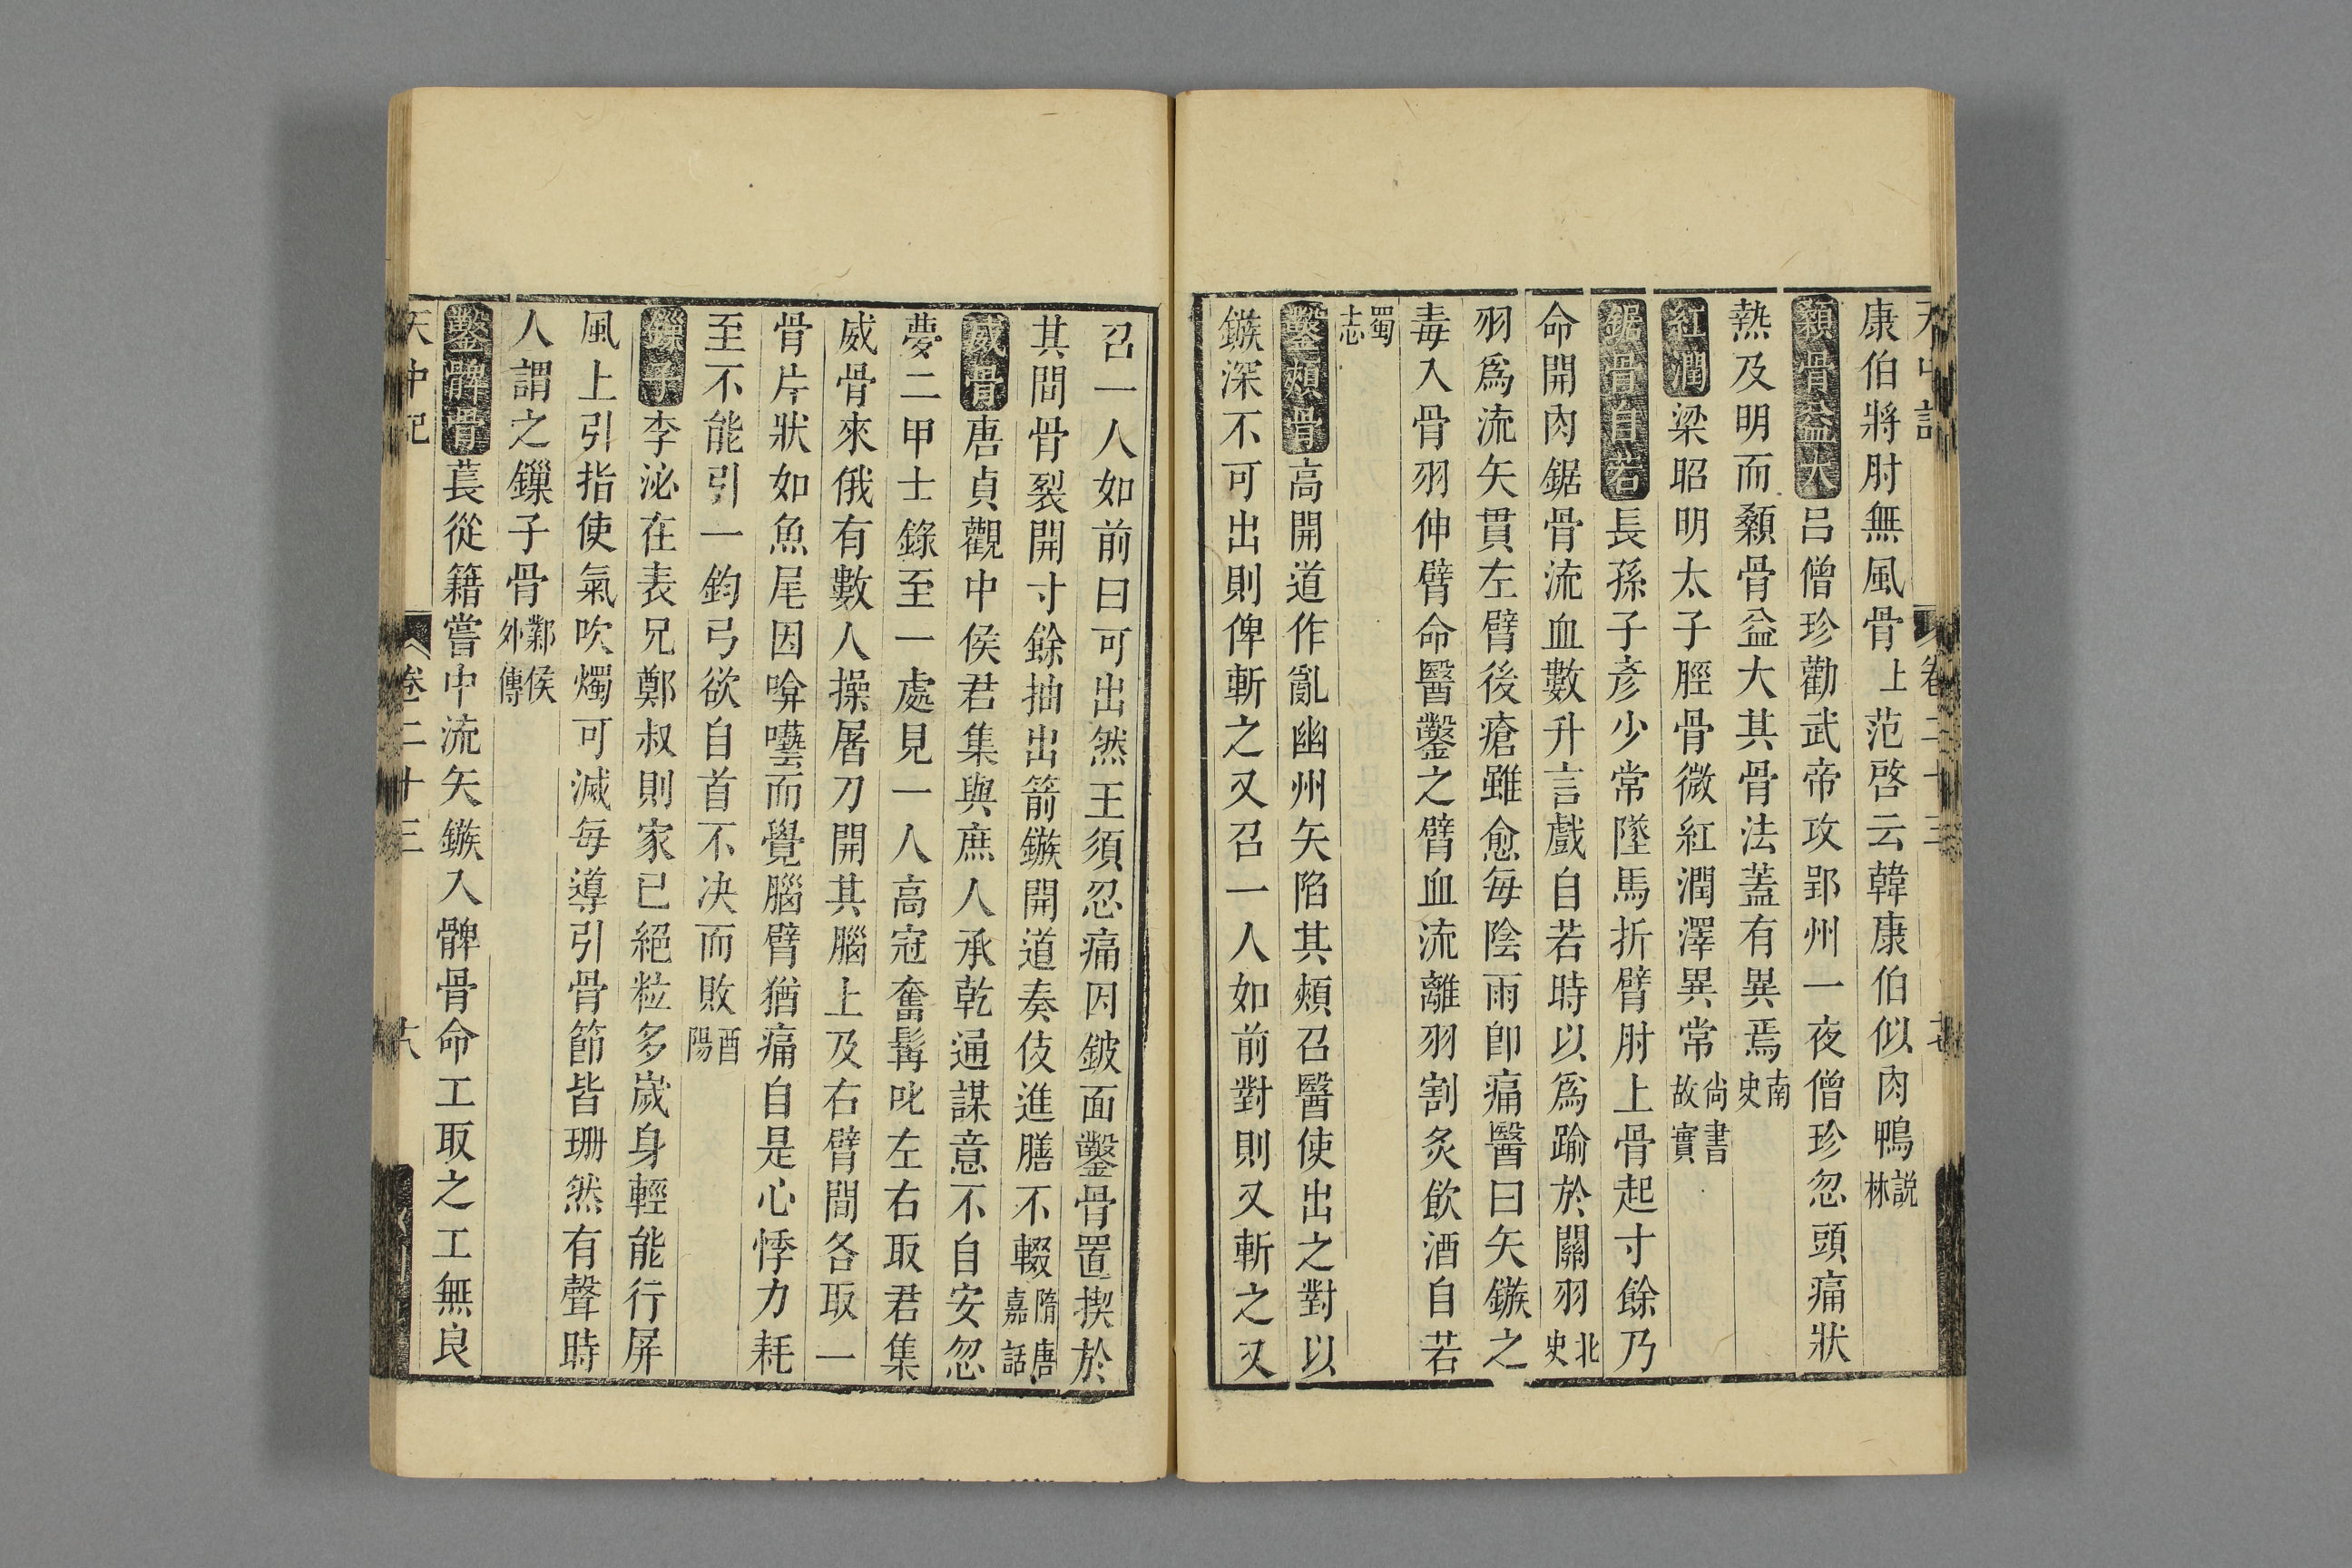 天中記 卷二十三
康伯將肘無風骨上范啓云韓康伯似肉鴨説林
顙骨益大呂僧珍勸武帝攻郢州一夜僧珍忽頭痛狀
熱及明而顙骨益大其骨法蓋有異焉南史
紅潤梁昭明太子脛骨微紅潤澤異常尙書故實
鋸骨自若長孫子彦少常墜馬折臂肘上骨起寸餘乃
命開肉鋸骨流血數升言戲自若時以爲踰於關羽北史
羽爲流矢貫左臂後瘡雖愈每陰雨卽痛醫曰矢鏃之
毒入骨羽伸臂命醫鑿之臂血流離羽割炙飲酒自若
蜀志
鑿頰骨高開道作亂幽州矢陷其頰召醫使出之對以
鏃深不可出則俾斬之又召一人如前對則又斬之又
召一人如前曰可出然王須忍痛因鈹面鑿骨置揳於
其間骨裂開寸餘抽出箭鏃開道奏伎進膳不輟隋唐嘉話
威骨唐貞觀中侯君集與庶人承乾通謀意不自安忽
夢二甲士錄至一處見一人高冠奮髯叱左右取君集
威骨來俄有數人操屠刀開其腦上及右臂間各取一
骨片狀如魚尾因唅囈而覺腦臂猶痛自是心悸力耗
至不能引一鈞弓欲自首不决而敗酉陽
鏁子李泌在表兄鄭叔則家已絕粒多歲身輕能行屏
風上引指使氣吹燭可滅每導引骨節皆珊然有聲時
人謂之鏁子骨鄴侯外傳
鑿髀骨萇從籍嘗中流矢鏃入髀骨命工取之工無良
天中記 卷二十三 十八